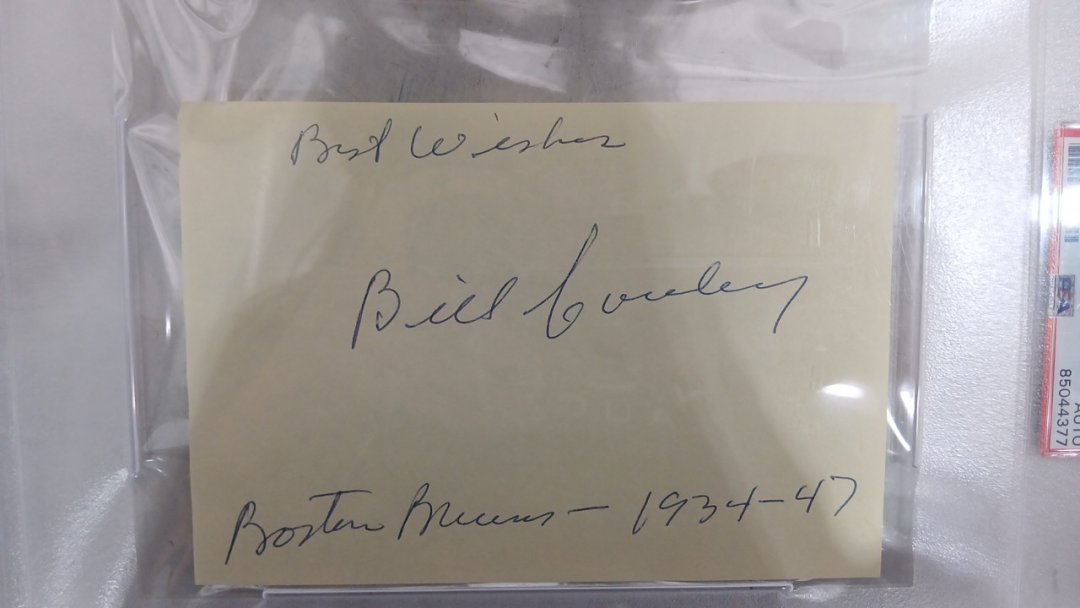 Best Wishes
Bill Cowley
Boston Bruins - 1934-47
PSA
AUTO
85044377